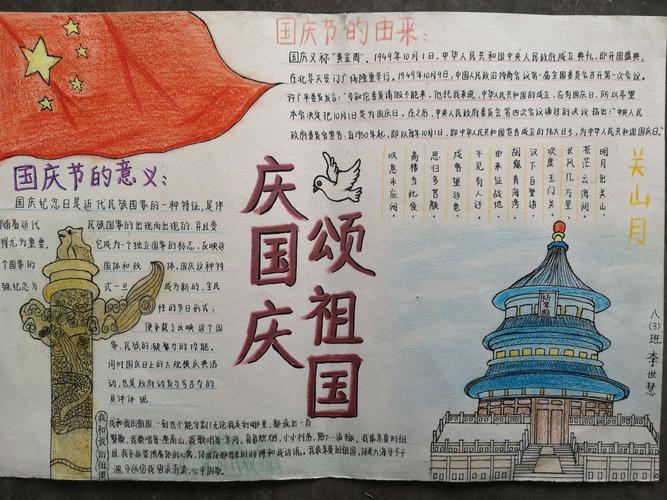 国庆节的由来：
国庆又称"黄金周"，1949年10月1日，中华人民共和国中央人民政府成立典礼，即开国盛典，
在北京天安门广场隆重举行。1949年10月9日，中国人民政治协商会议第一届全国委员会召开第一次会议。
许广平委员发言："马叙伦委员请假不能来，他托我来说，中华人民共和国的成立，应有国庆日，所以希望
本会决定把10月1日定为国庆日，在之后，中央人民政府委员会第四次会议通过的决议指出："中央人民
政府委员会宣告：自1950年起，即以每年10月1日，即中华人民共和国宣告成立的伟大日子，为中华人民共和国国庆日。"
关山月
明月出天山，
苍茫云海间。
长风几万里，
吹度玉门关。
汉下白登道，
胡窥青海湾。
由来征战地，
不见有人还。
戍客望边色，
思归多苦颜。
高楼当此夜，
叹息未应闲。
国庆节的意义：
国庆纪念日是近代民族国家的一种特征，是伴
随着近代民族国家的出现而出现的，并且变
得尤为重要，它成为一个独立国家的标志，反映这
个国家的国体和政体，国庆这种特
殊纪念方式一旦成为新的、全民
性的节日形式，
便承载了反映这个国
家、民族的凝聚力的功能。
同时国庆日上的大规模庆典活
动，也是政府动员与号召力的
具体体现
颂祖国
庆国庆
我和我的祖国
我和我的祖国，一刻也不能分割！无论我走到哪里，都流出一首
赞歌，我歌唱每一座高山，我歌唱每一条河，袅袅炊烟，小小村落，路上一道辙。我最亲爱的祖
祈年殿
八(3)班 李世慧